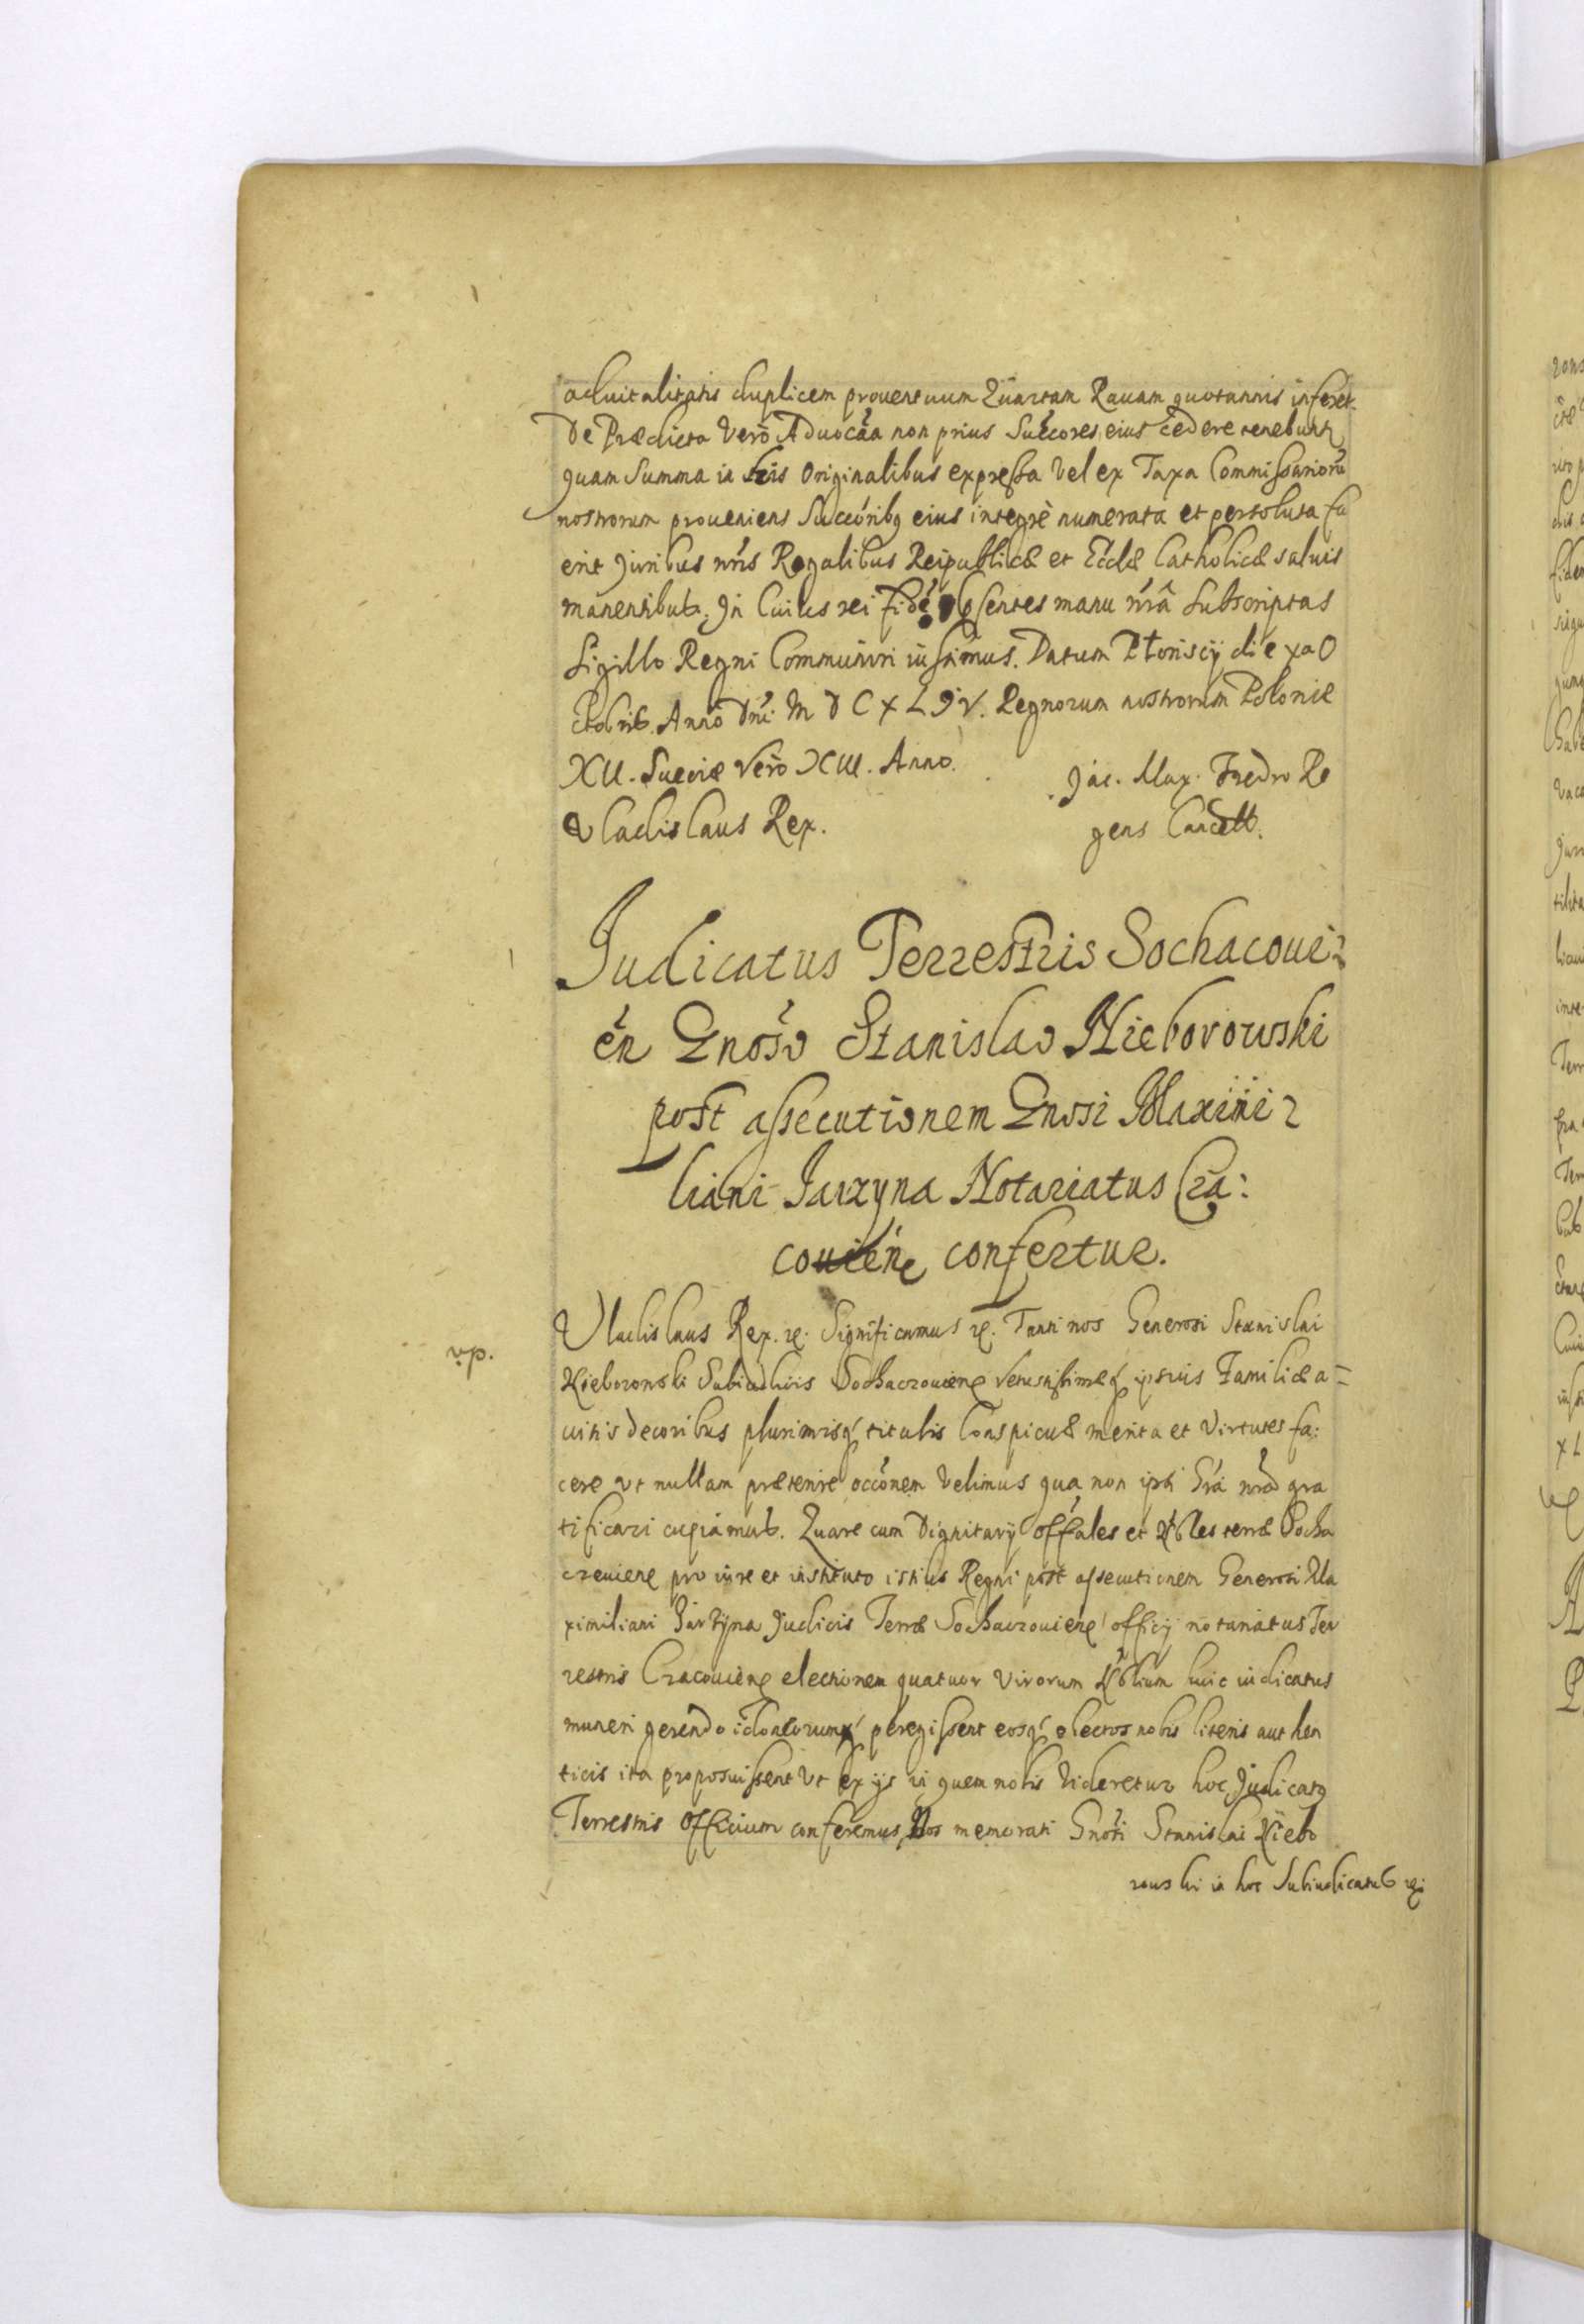 advitalitatis duplicem proventuum Quartam Ravam quotannis inferet.
De Prædicta Verò Advocãa non prius Succores eius cedere tenebuntr
quam Summa in Lris Originalibus expressa Vel ex Taxa Commissariorũ
nostrorum proveniens Succoribq eius integrè numerata et persoluta fu
erit Juribus nris Regalibus Reipublicæ et Ecclæ Catholicæ salvis
manentibus. In Cuius rei fidẽ pñsentes manu nrâ Subscriptas
Sigillo Regni Communiri iussimus. Datum die xa O
ctobris Anno Dni M D C X L IV. Regnorum nostrorum Poloniæ
XII. Sueciæ Verò XIII. Anno.
Jac. Max. Fredro Re
Vladislaus Rex.
gens Cancell.
Judicatus Terrestris Sochacovi:
én Gnoso Stanislao Nieborowski
post assecutionem Gnosi Maximi:
liani Jarzyna Notariatus Cra:
coviene confertur.
Vladislaus Rex. &. Significamus &. Tanti nos Generosi Stanislai
vp.
Nieborowski Subiudicis Sochaczoviene Vetustissimæq ipsius Familiæ a=
vitis decoribus plurimisq titulis Conspicuæ merita et Virtutes fa:
cere Vt nullam præterire occõnem Velimus qua non ipsi Grã nrã gra
tificari cupiamus. Quare cum Dignitarij Offales et Nbles terræ Socha
czeviene pro iure et instituto istius Regni post assecutionem Generosi Ma
ximiliani Jarzyna Judicis Terræ Sochaczoviene officij notariatus Ter
restris Cracoviene electionem quatuor Virorum Nblium huic iudicatus
muneri gerendo idoneorumq peregissent eosq electos nobis literis authen
ticis ita proposuissent Vt ex ijs in quem nobis Videretur hoc Judicatq
Terrestris Officium conferemus, Nos memorati Gnosi Stanislai Niebo
rowski in hoc Subiudicatus